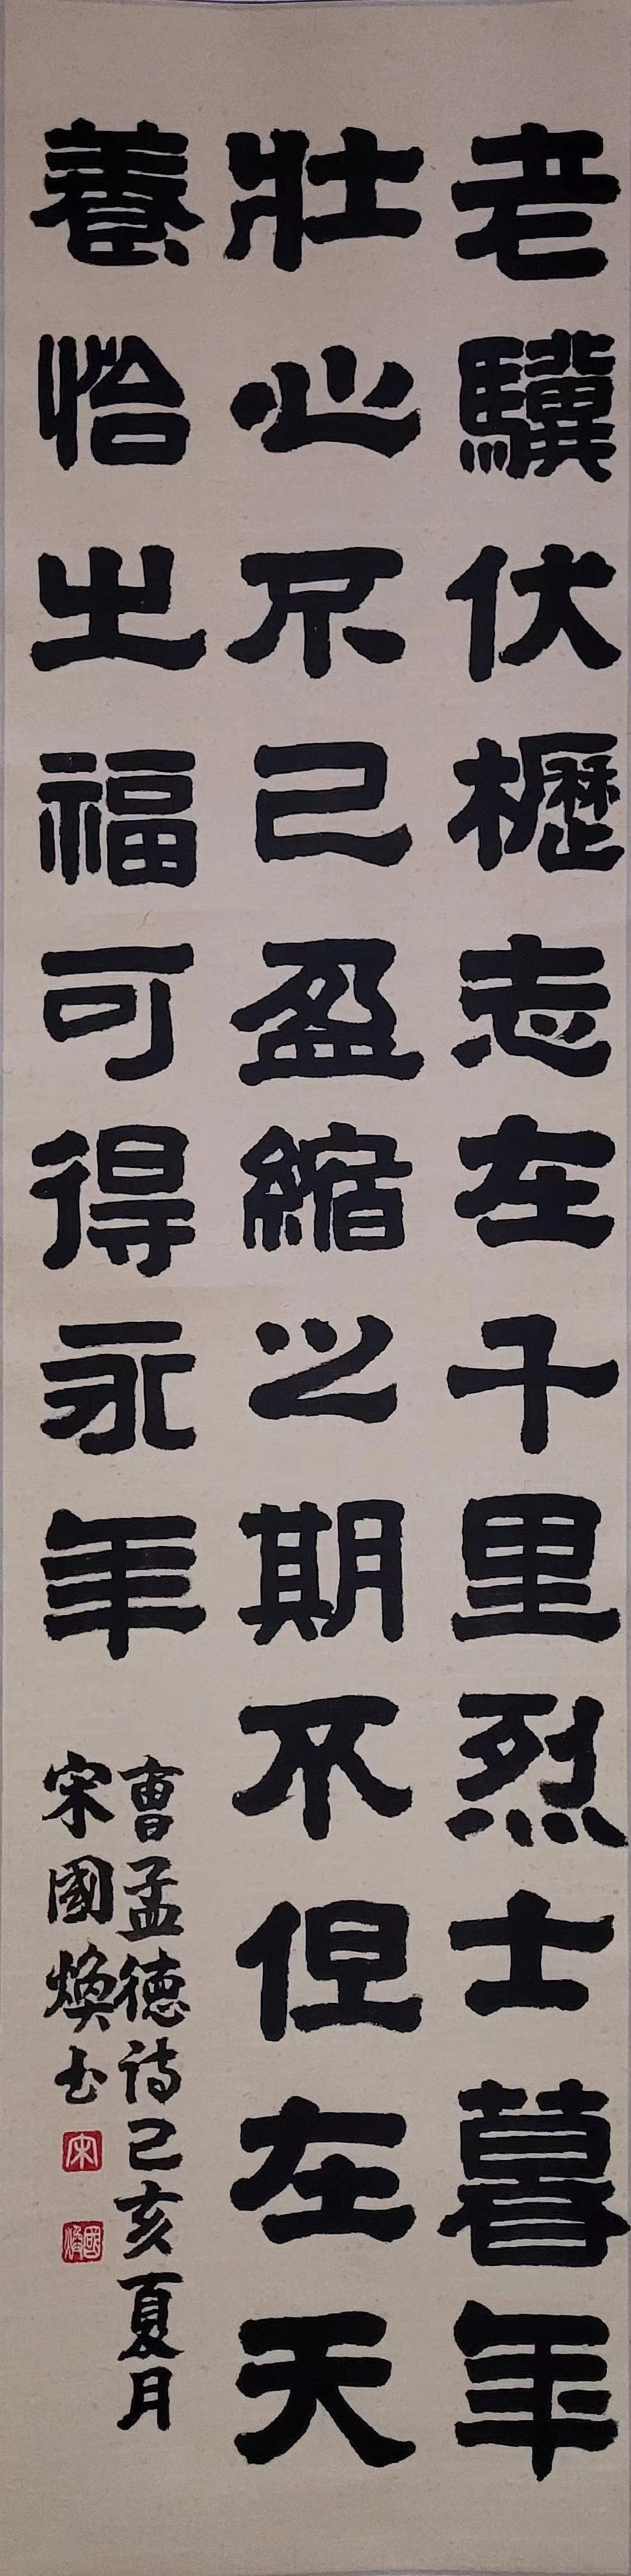 老驥伏櫪志在千里烈士暮年
壯心不已盈縮之期不但在天
養怡之福可得永年
曹孟德詩己亥夏月
宋國煥书
宋
國煥